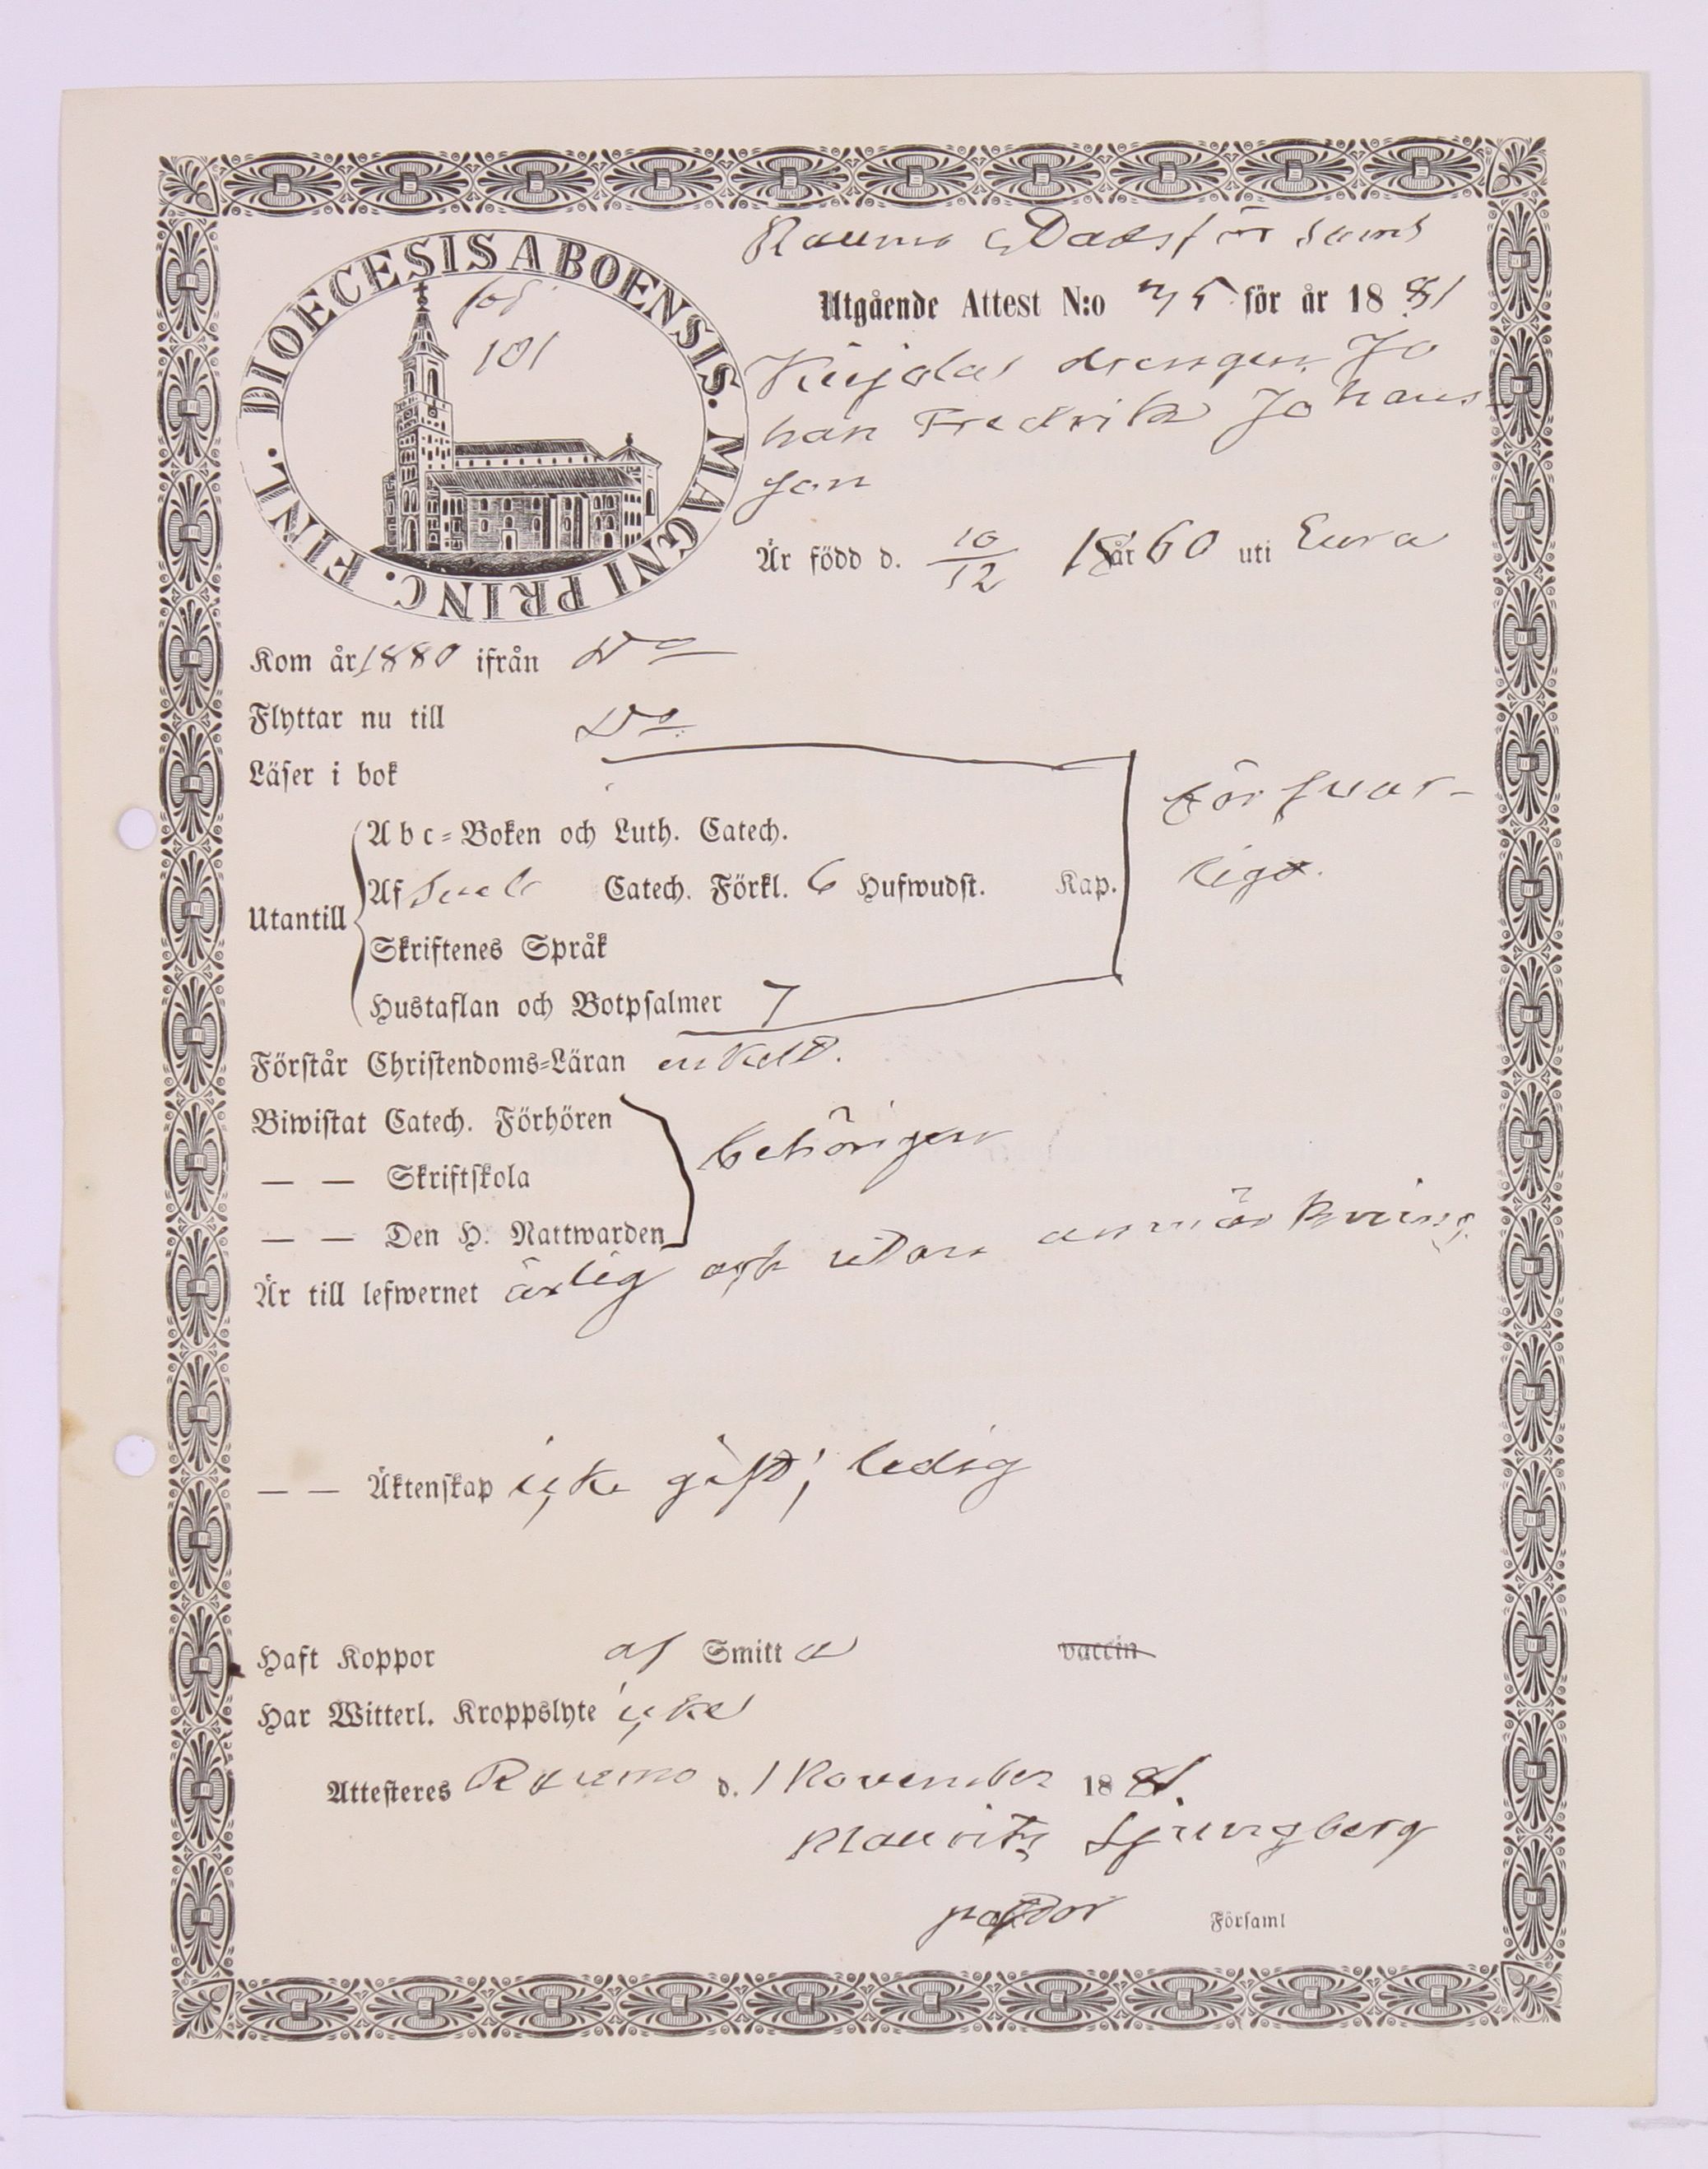 DIOECESIS ABOENSIS. MAGNI PRINC. FINL.
fol
101
Raumo
Utgående Attest N:o 75 för år 1881
drengen Jo
han Fredrik Johans
son
Är född d. 10/12 18 år 60 uti Eura
Kom år 1880 ifrån Do
Flyttar nu till Do
Läser i bok
försvar-
ligt.
Utantill
Abc-Boken och Luth. Catech.
Af Sveb Catech. Förkl. 6 Hufwudst. Kap.
Skriftenes Språk
Hustaflan och Botpsalmer 7
Förstår Christendoms-Läran enkelt.
Biwistat Catech. Förhören
— — Skriftskola
behörigen
— — Den H. Nattwarden
Är till lefwernet ärlig och utan anmärkning.
— — Äktenskap icke gift, ledig
Haft Koppor af Smitta vaccin
Har Witterl. Kroppslyte icke
Attesteres Raumo d. 1 November 1881.
Mauritz Ljungberg
pastor Församl